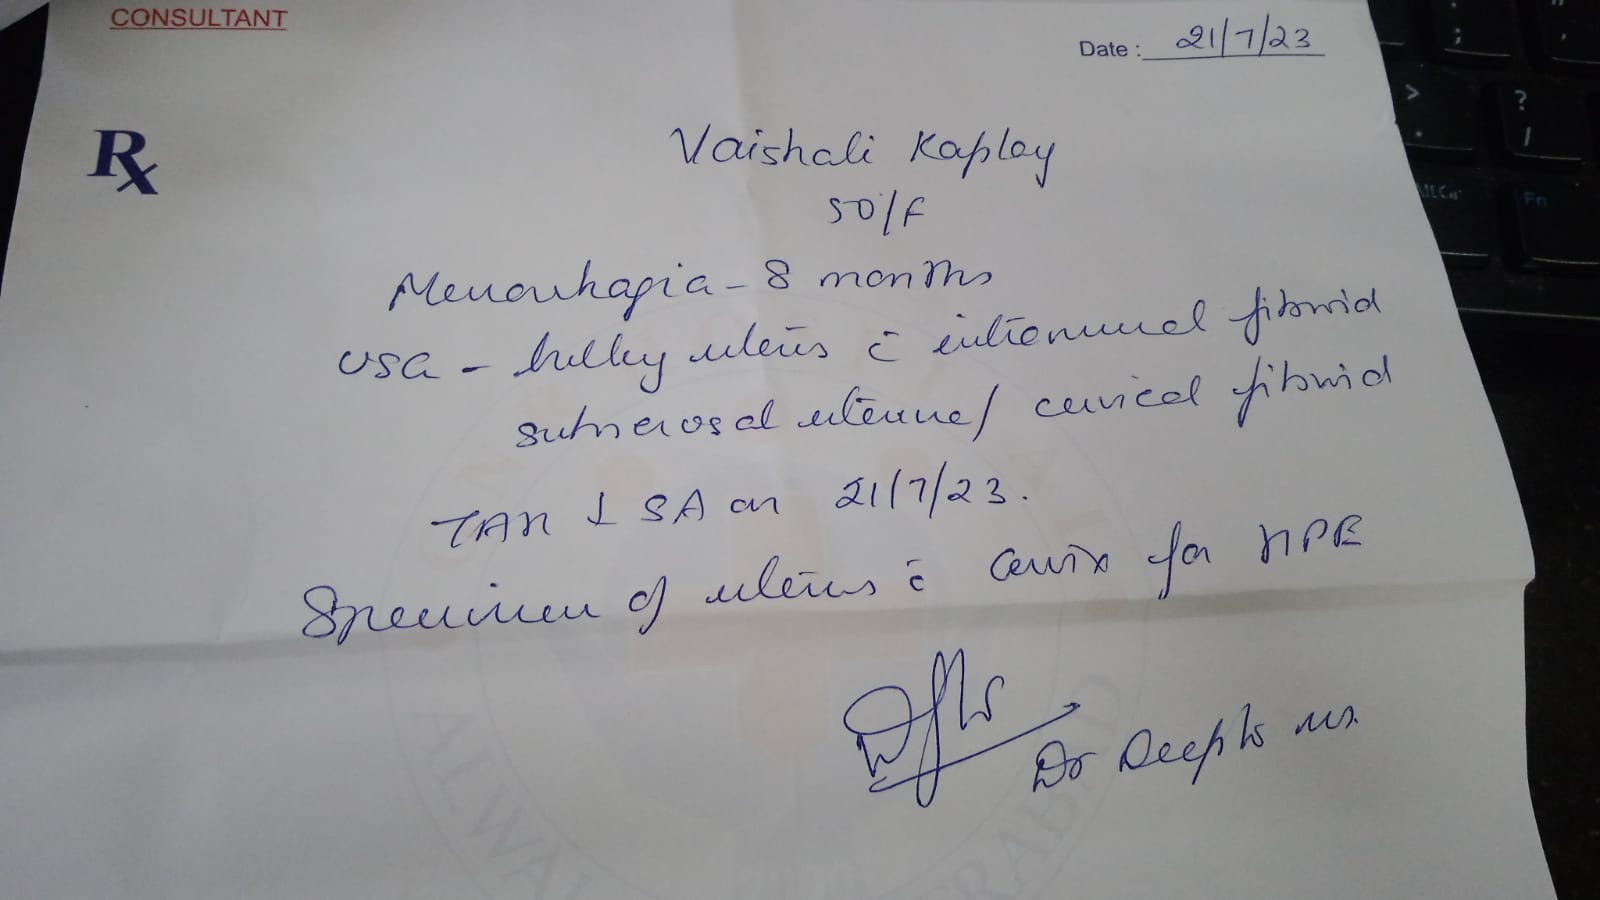 CONSULTANT
Date : 21/7/23
Rx
Vaishali Kapley
50/F
Menorrhagia - 8 months
USG - bulky uterus c̄ intramural fibroid
subserosal uterine/ cervical fibroid
TAH ↓ SA on 21/7/23.
Specimen of uterus c̄ cervix for HPE
Dr Deepti